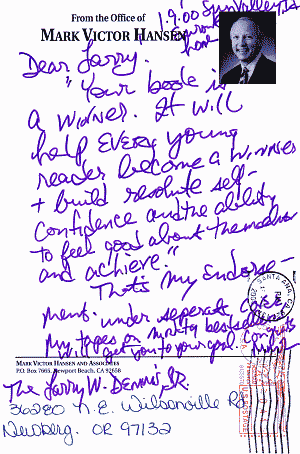 From the Office of
MARK VICTOR HANSEN
1.9.00 Sun Valley, Id
Dear Larry.
"Your book is
a winner. It will
help EVERY young
reader become a winner
+ build resolute self-
confidence and the ability
to feel good about themselves
and achieve."
That's my Endorse-
ment. under seperate cover
my tapes on mktg bestsellers
will get you to your goal. Congrats
MARK VICTOR HANSEN AND ASSOCIATES
P.O. Box 7665, Newport Beach, CA 92658
The Larry W. Dennis, Sr.
36280 N.E. Wilsonville Rd
Newberg. OR 97132
SANTA ANA, CA